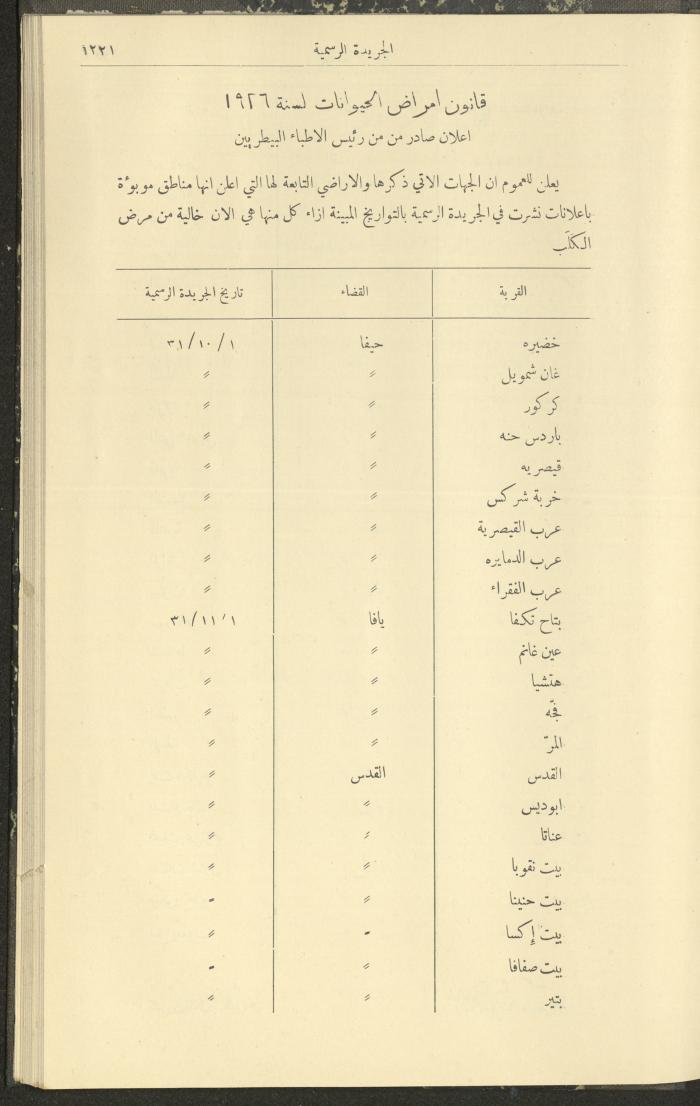 الجريدة الرسمية ١٢٢١
قانون امراض الحيوانات لسنة ١٩٢٦
اعلان صادر من من رئيس الاطباء البيطريين
يعلن للعموم ان الجهات الاتي ذكرها والاراضي التابعة لها التي اعلن انها مناطق موبوءة
باعلانات نشرت في الجريدة الرسمية بالتواريخ المبينة ازاء كل منها هي الان خالية من مرض
الكَلَب
القرية القضاء تاريخ الجريدة الرسمية
خضيره حيفا ٣١/١٠/١
غان شمويل 〃 〃
كركور 〃 〃
باردس حنه 〃 〃
قيصريه 〃 〃
خربة شركس 〃 〃
عرب القيصرية 〃 〃
عرب الدمايره 〃 〃
عرب الفقراء 〃 〃
بتاح تكفا يافا ٣١/١١/١
عين غانم 〃 〃
هتشيا 〃 〃
فجّه 〃 〃
المرّ 〃 〃
القدس القدس 〃
ابوديس 〃 〃
عناتا 〃 〃
بيت نقوبا 〃 〃
بيت حنينا 〃 -
بيت إكسا - 〃
بيت صفافا 〃 -
بتير 〃 〃